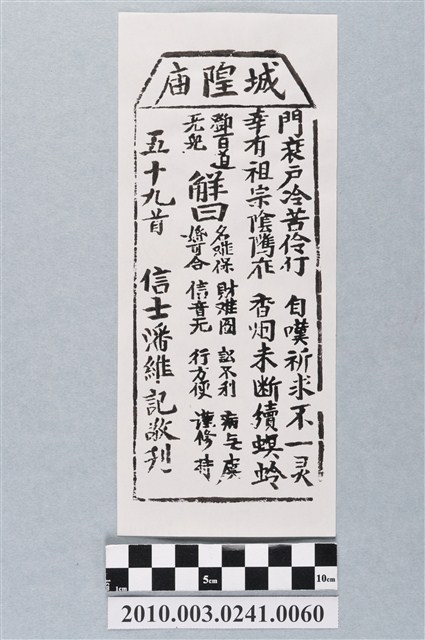 城隍庙
門衰戶冷苦伶仃 自嘆祈求不一灵
幸有祖宗陰隲在 香烟未断續螟蛉
鄧百道
无兒
解曰
名难保 財难圖 訟不利 病无虞
婚可合 信音无 行方便 謹修持
五十九首 信士潘維記敬刊
1cm 5cm 10cm
2010.003.0241.0060